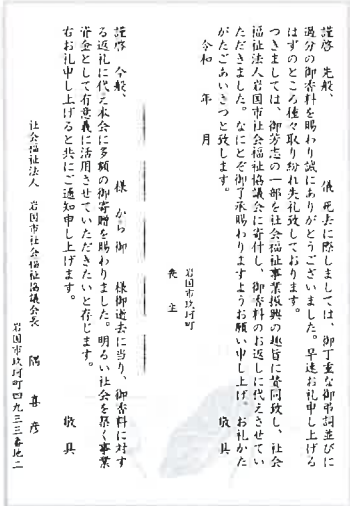 謹啓　先般、　　　　儀　死去に際しましては、御丁重な御弔詞並びに
過分の御香料を賜わり誠にありがとうございました。早速お礼申し上げる
はずのところ種々取り紛れ失礼致しております。
つきましては、御芳志の一部を社会福祉事業振興の趣旨に賛同致し、社会
福祉法人岩国市社会福祉協議会に寄付し、御香料のお返しに代えさせてい
ただきました。なにとぞ御了承賜わりますようお願い申し上げ、お礼かた
がたごあいさつと致します。　　　　敬　具
令和　年　月
岩国市玖珂町
喪　主
謹啓　今般、　　　様　から御　　様御逝去に当り、御香料に対す
る返礼に代え本会に多額の御寄贈を賜わりました。明るい社会を築く事業
資金として有意義に活用させていただきたいと存じます。
右お礼申し上げると共にご通知申し上げます。　　　　敬　具
社会福祉法人　岩国市社会福祉協議会長　隅　喜　彦
岩国市玖珂町四九三三番地二